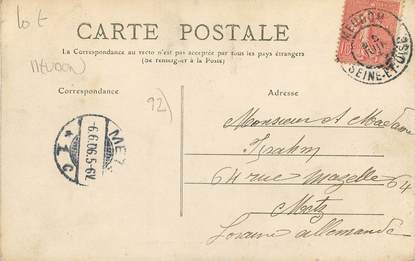 lot
(MEUDON)
92)
CARTE POSTALE
La Correspondance au recto n'est pas acceptée par tous les pays étrangers
(Se renseigner à la Poste)
Correspondance
Adresse
MEUDON
SEINE-ET-OISE
METZ
6.6.06.5-6V.
* 1 c
Monsieur et Madame
64 rue Mazelle 64
Metz
Loraine allemande